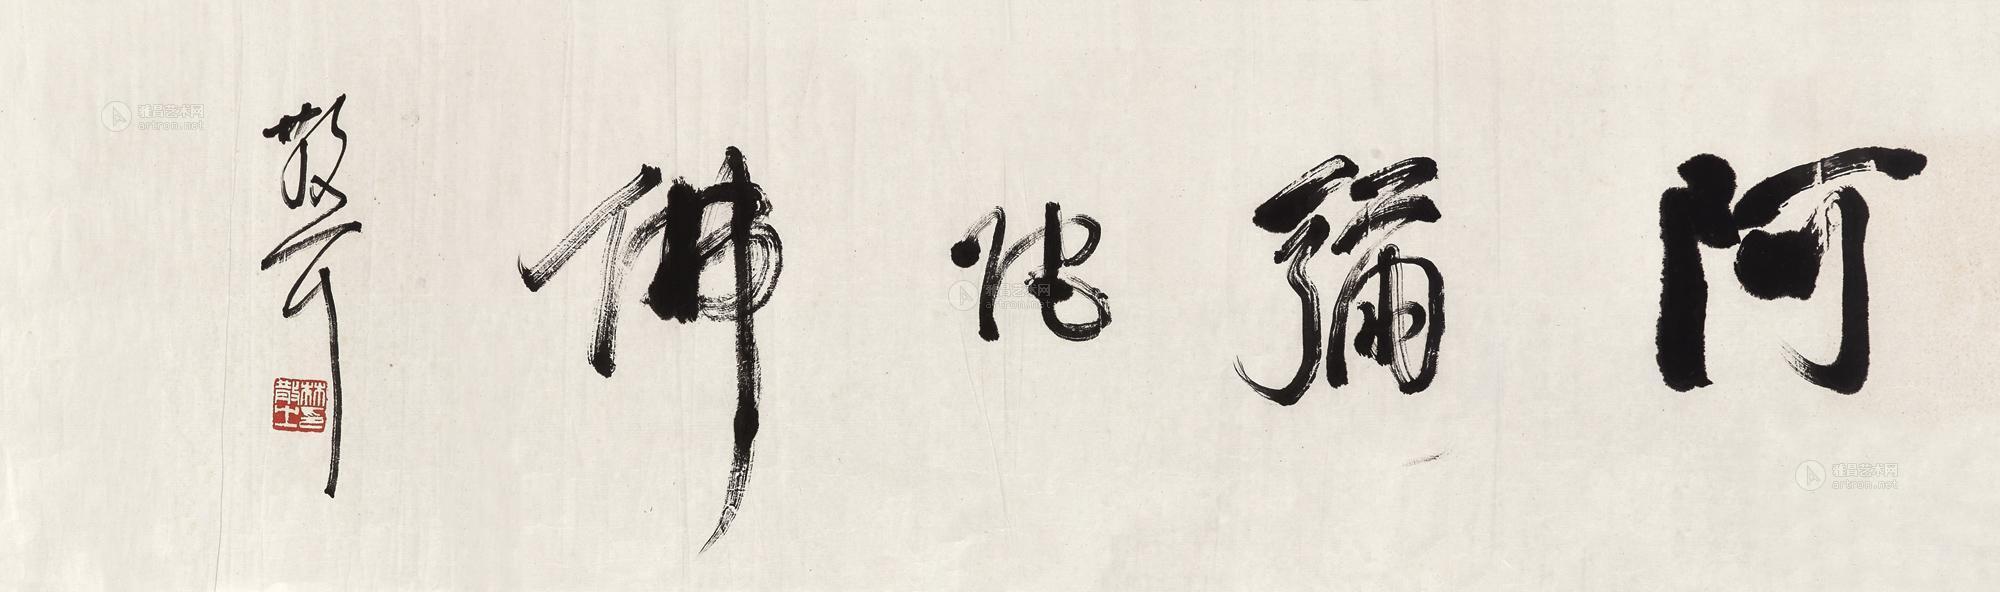 阿彌陀佛
散耳
林印
散之
雅昌艺术网
artron.net
雅昌艺术网
artron.net
雅昌艺术网
artron.net